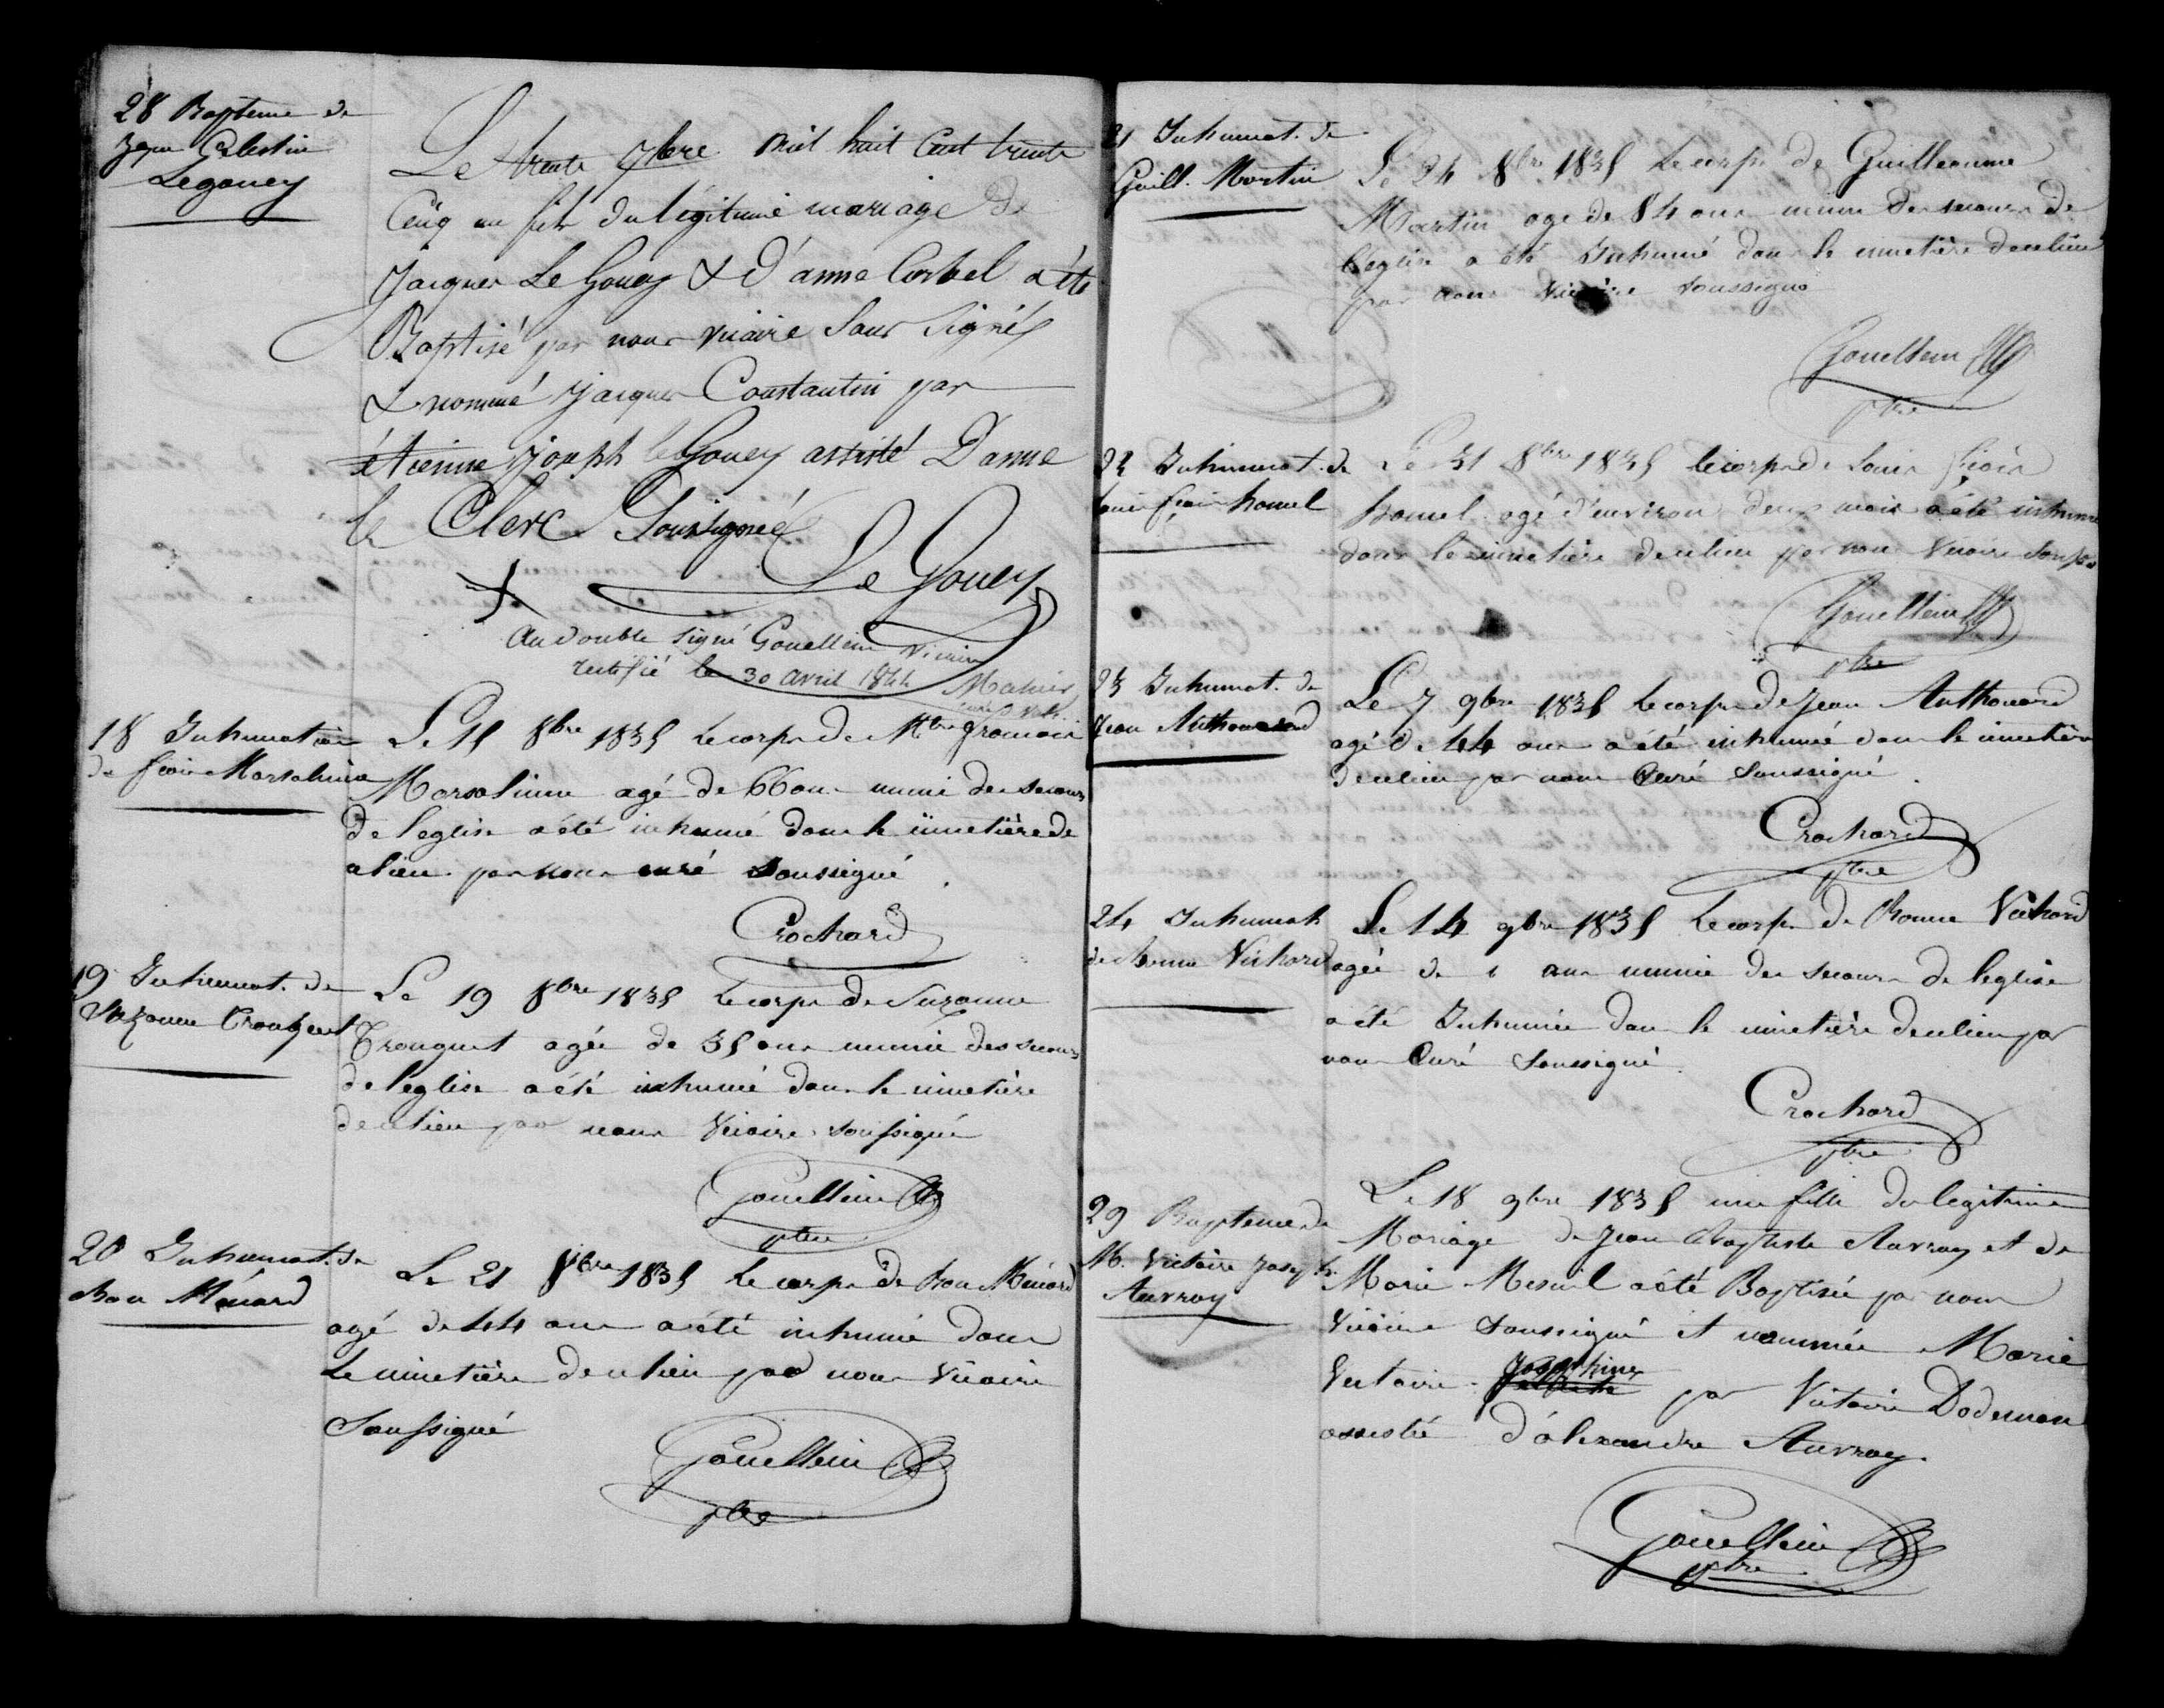 28 Bapteme de
Jqun Celestin
Legouey
Le trente 7bre mil huit Cent trente
Cinq un fils du légitime mariage de
Jacques Le Gouey & d'anne Corbel a été
Baptisé par nous vicaire Sous Signé
& nommé Jacques Constantin par
étienne Joseph leGouey assisté D'anne
le Clerc Soussignés
Le Gouey
Au double signé Gouellein vicaire
rectifié le 30 avril 1844 Mahier
18 Inhumation
de frois Marsolines
Le 15 8bre 1835 le corps de Mtre francois
Marsolines agé de 66 ans muni des secours
de l'eglise a été inhumé dans le cimetière de
ce lieu par nous curé soussigné
Crochard
19 Inhumat. de
Suzanne Tronquet
Le 19 8bre 1835 le corps de Suzanne
Tronquet agée de 35 ans munie des secours
de l'eglise a été inhumé dans le cimetière
de ce lieu par nous Vicaire soussigné
Gouellein
ptre
20 Inhumat. de
Bon Ménard
Le 21 8bre 1835 le corps de Bon Ménard
agé de 44 ans a été inhumé dans
le cimetière de ce lieu par nous vicaire
Soussigné
Gouellein
ptre
21 Inhumat. de
Guill. Martin
Le 24 8bre 1835 le corps de Guilleaume
Martin age de 84 ans muni des secours de
l'eglise a été Inhumé dans le cimetière de ce lieu
par nous Vicaire soussigné
Gouellein
ptre
22 Inhumat. de
Louis frçois hamel
Le 31 8bre 1835 le corps de Louis frçois
hamel agé d'environ deux mois a été inhumé
dans le cimetière de ce lieu par nous Vicaire
Gouellein
ptre
23 Inhumat. de
Jean Authouard
Le 7 9bre 1835 le corps de Jean Authouard
agé de 44 ans a été inhumé dans le cimetière
de ce lieu par nous Curé Soussigné.
Crochard
ptre
24 Inhumat.
de Bonne Vichard
Le 14 9bre 1835 le corps de Bonne Vichard
agée de ans munie des secours de l'eglise
a été Inhumée dans le cimetière de ce lieu par
nous Curé Soussigné.
Crochard
ptre
29 Bapteme de
M. Victoire Joseph.
Auvray
Le 18 9bre 1835 une fille du legitime
Mariage de Jean Baptiste Auvray et de
Marie Mesnil a été Baptisée par nous
Vicaire soussigné et nommée Marie
Victoire Josephine par Victoire Dodeman
assistée d'alexandre Auvray.
Gouellein
ptre